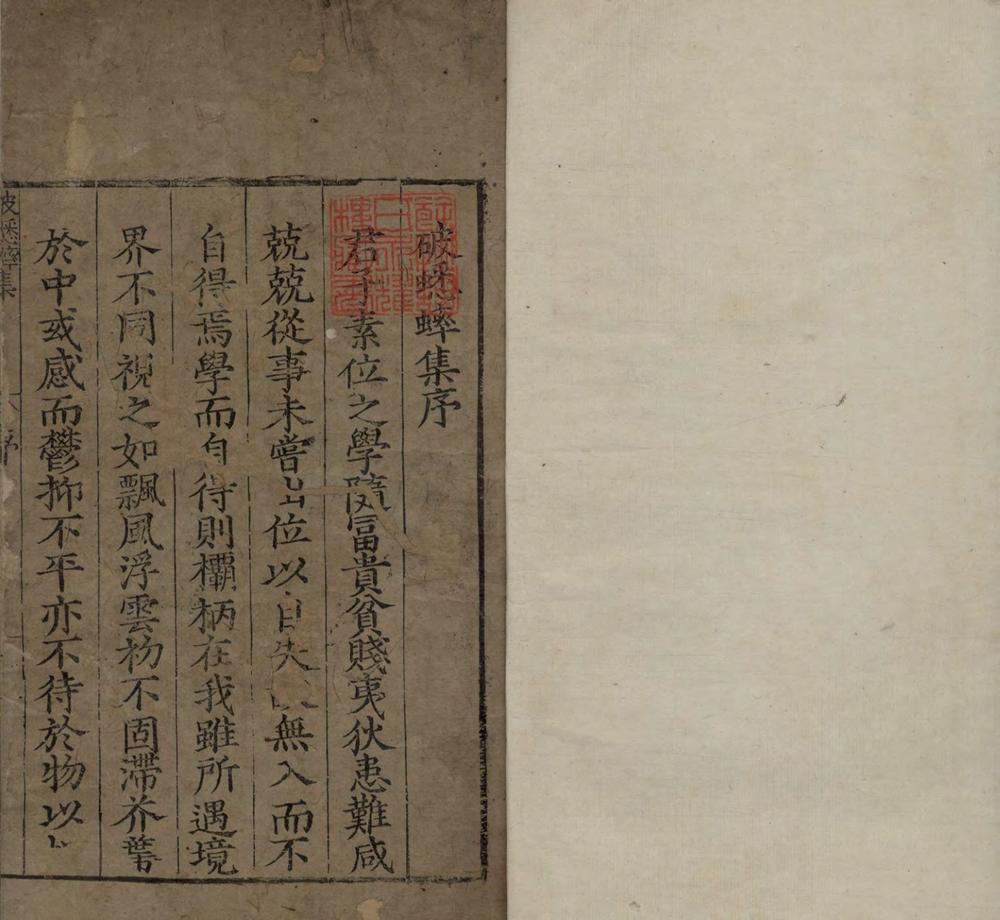 破蟋蟀集序
君子素位之學隨富貴貧賤夷狄患難咸
兢兢從事未嘗出位以自失故無入而不
自得焉學而自得則欛柄在我雖所遇境
界不同視之如飄風浮雲初不固滯芥蔕
於中或感而鬱抑不平亦不待於物以
破蟋蟀集
序